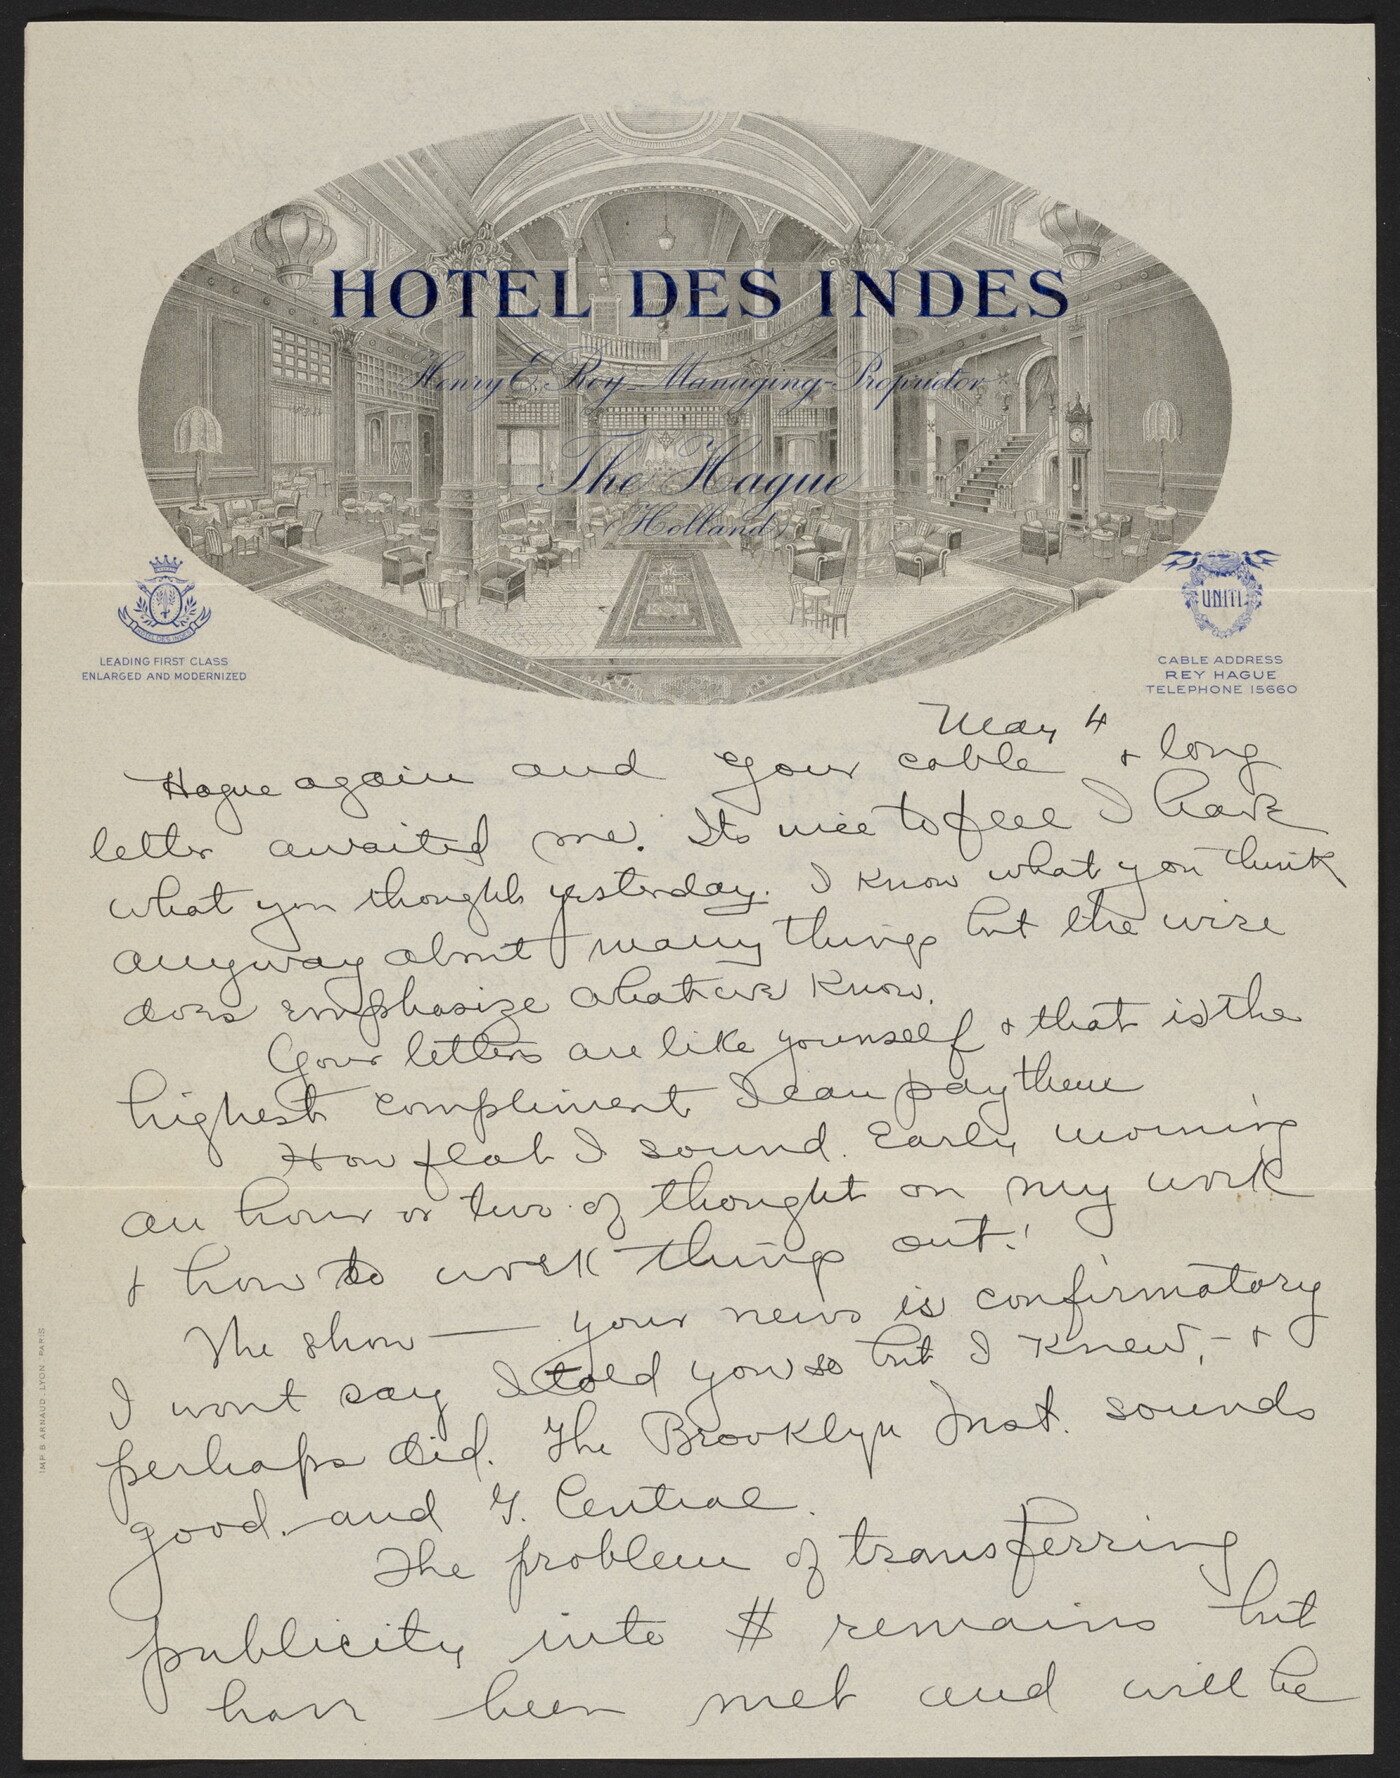 HOTEL DES INDES
Henry E. Rey Managing-Proprietor
The Hague
(Holland)
HOTEL DES INDES
LEADING FIRST CLASS
ENLARGED AND MODERNIZED
UNITI
CABLE ADDRESS
REY HAGUE
TELEPHONE 15660
May 4
Hague again and your cable & long
letter awaited me. Its nice to feel I have
what you thought yesterday. I know what you think
anyway about many things but the wire
does emphasize what we know.
Your letters are like yourself & that is the
highest compliment I can pay them
How flat I sound. Early morning
an hour or two of thought on my work
& how to work things out!
The show — your news is confirmatory
I wont say I told you so but I knew, - &
perhaps did. The Brooklyn Inst. sounds
good. and G. Central.
The problem of transferring
publicity into $ remains but
have been met and will be
IMP. B. ARNAUD. LYON. PARIS